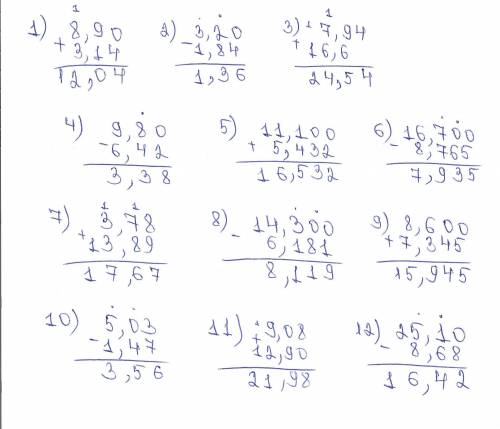 1) 8,90 + 3,14 = 12,04
2) 3,20 - 1,84 = 1,36
3) 7,94 + 16,6 = 24,54
4) 9,80 - 6,42 = 3,38
5) 11,100 + 5,432 = 16,532
6) 16,700 - 8,765 = 7,935
7) 3,78 + 13,89 = 17,67
8) 14,300 - 6,181 = 8,119
9) 8,600 + 7,345 = 15,945
10) 5,03 - 1,47 = 3,56
11) 9,08 + 12,90 = 21,98
12) 25,10 - 8,68 = 16,42